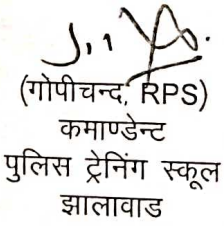 (गोपीचन्द, RPS)
कमाण्डेन्ट
पुलिस ट्रेनिंग स्कूल
झालावाड